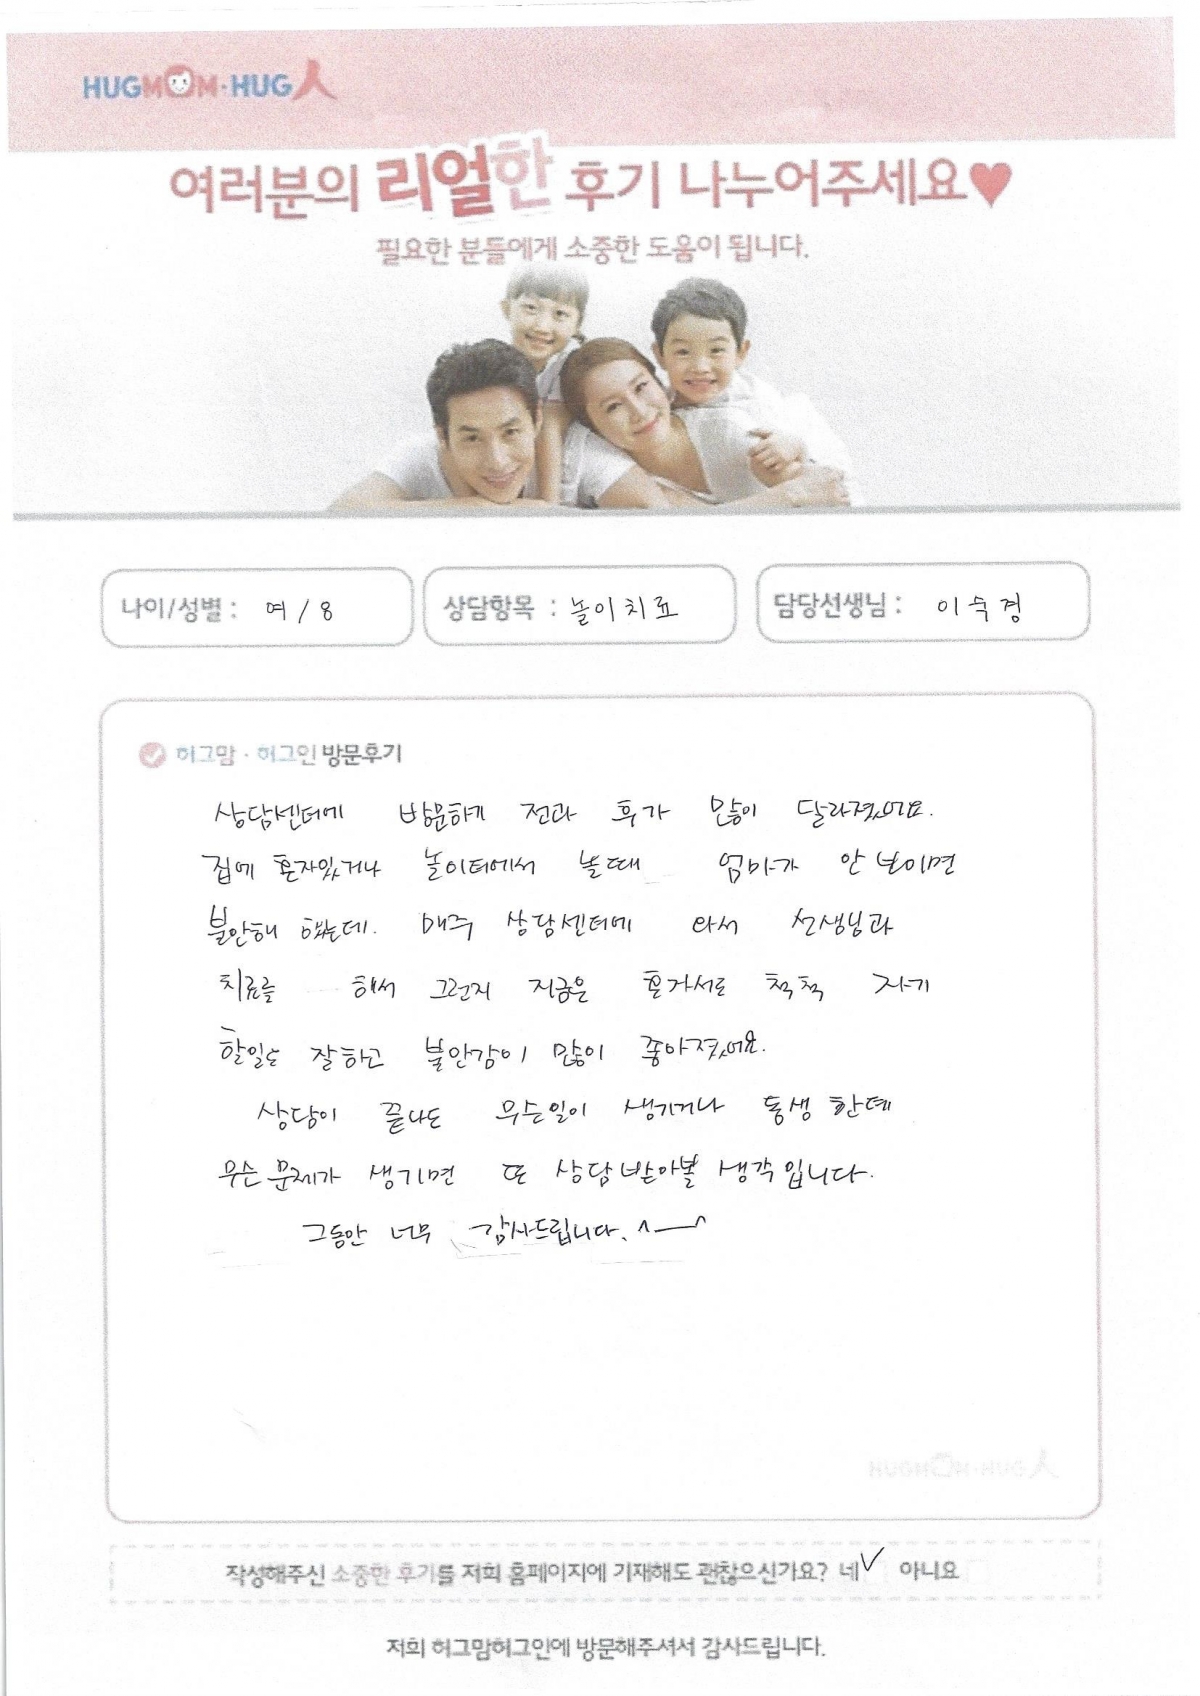 HUGMOM·HUG人
여러분의 리얼한 후기 나누어주세요♥
필요한 분들에게 소중한 도움이 됩니다.
나이/성별 : 여 / 8 상담항목 : 놀이치료 담당선생님 : 이숙경
허그맘·허그인 방문후기
상담센터에 방문하게 전과 후가 많이 달라졌어요.
집에 혼자있거나 놀이터에서 놀때 엄마가 안 보이면
불안해 했는데. 매주 상담센터에 와서 선생님과
치료를 해서 그런지 지금은 혼자서도 척척 자기
할일도 잘하고 불안감이 많이 좋아졌어요.
상담이 끝나도 무슨일이 생기거나 동생한테
무슨 문제가 생기면 또 상담받아볼 생각입니다.
그동안 너무 감사드립니다. ^__^
작성해주신 소중한 후기를 저희 홈페이지에 기재해도 괜찮으신가요? 네✓ 아니요
저희 허그맘허그인에 방문해주셔서 감사드립니다.